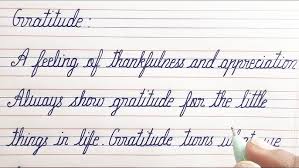 Gratitude :
A feeling of thankfulness and appreciation
Always show gratitude for the little
things in life. Gratitude turns what we